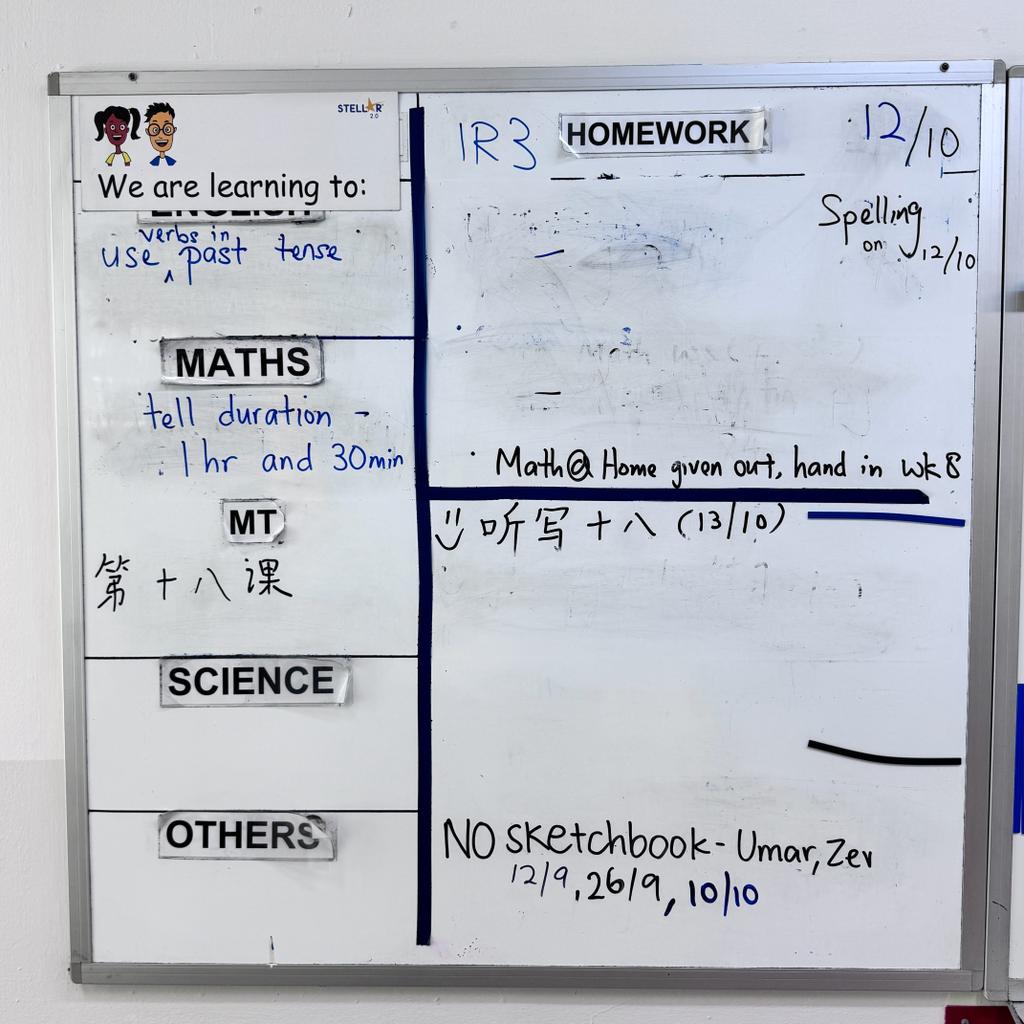 STELLAR
2.0
We are learning to:
ENGLISH
verbs in
use ^ past tense
MATHS
tell duration -
1 hr and 30min
MT
第十八课
SCIENCE
OTHERS
1R3
HOMEWORK
12/10
Spelling
on 12/10
Math@ Home given out, hand in wk 8
听写十八 (13/10)
NO sketchbook - Umar, Zev
12/9, 26/9, 10/10